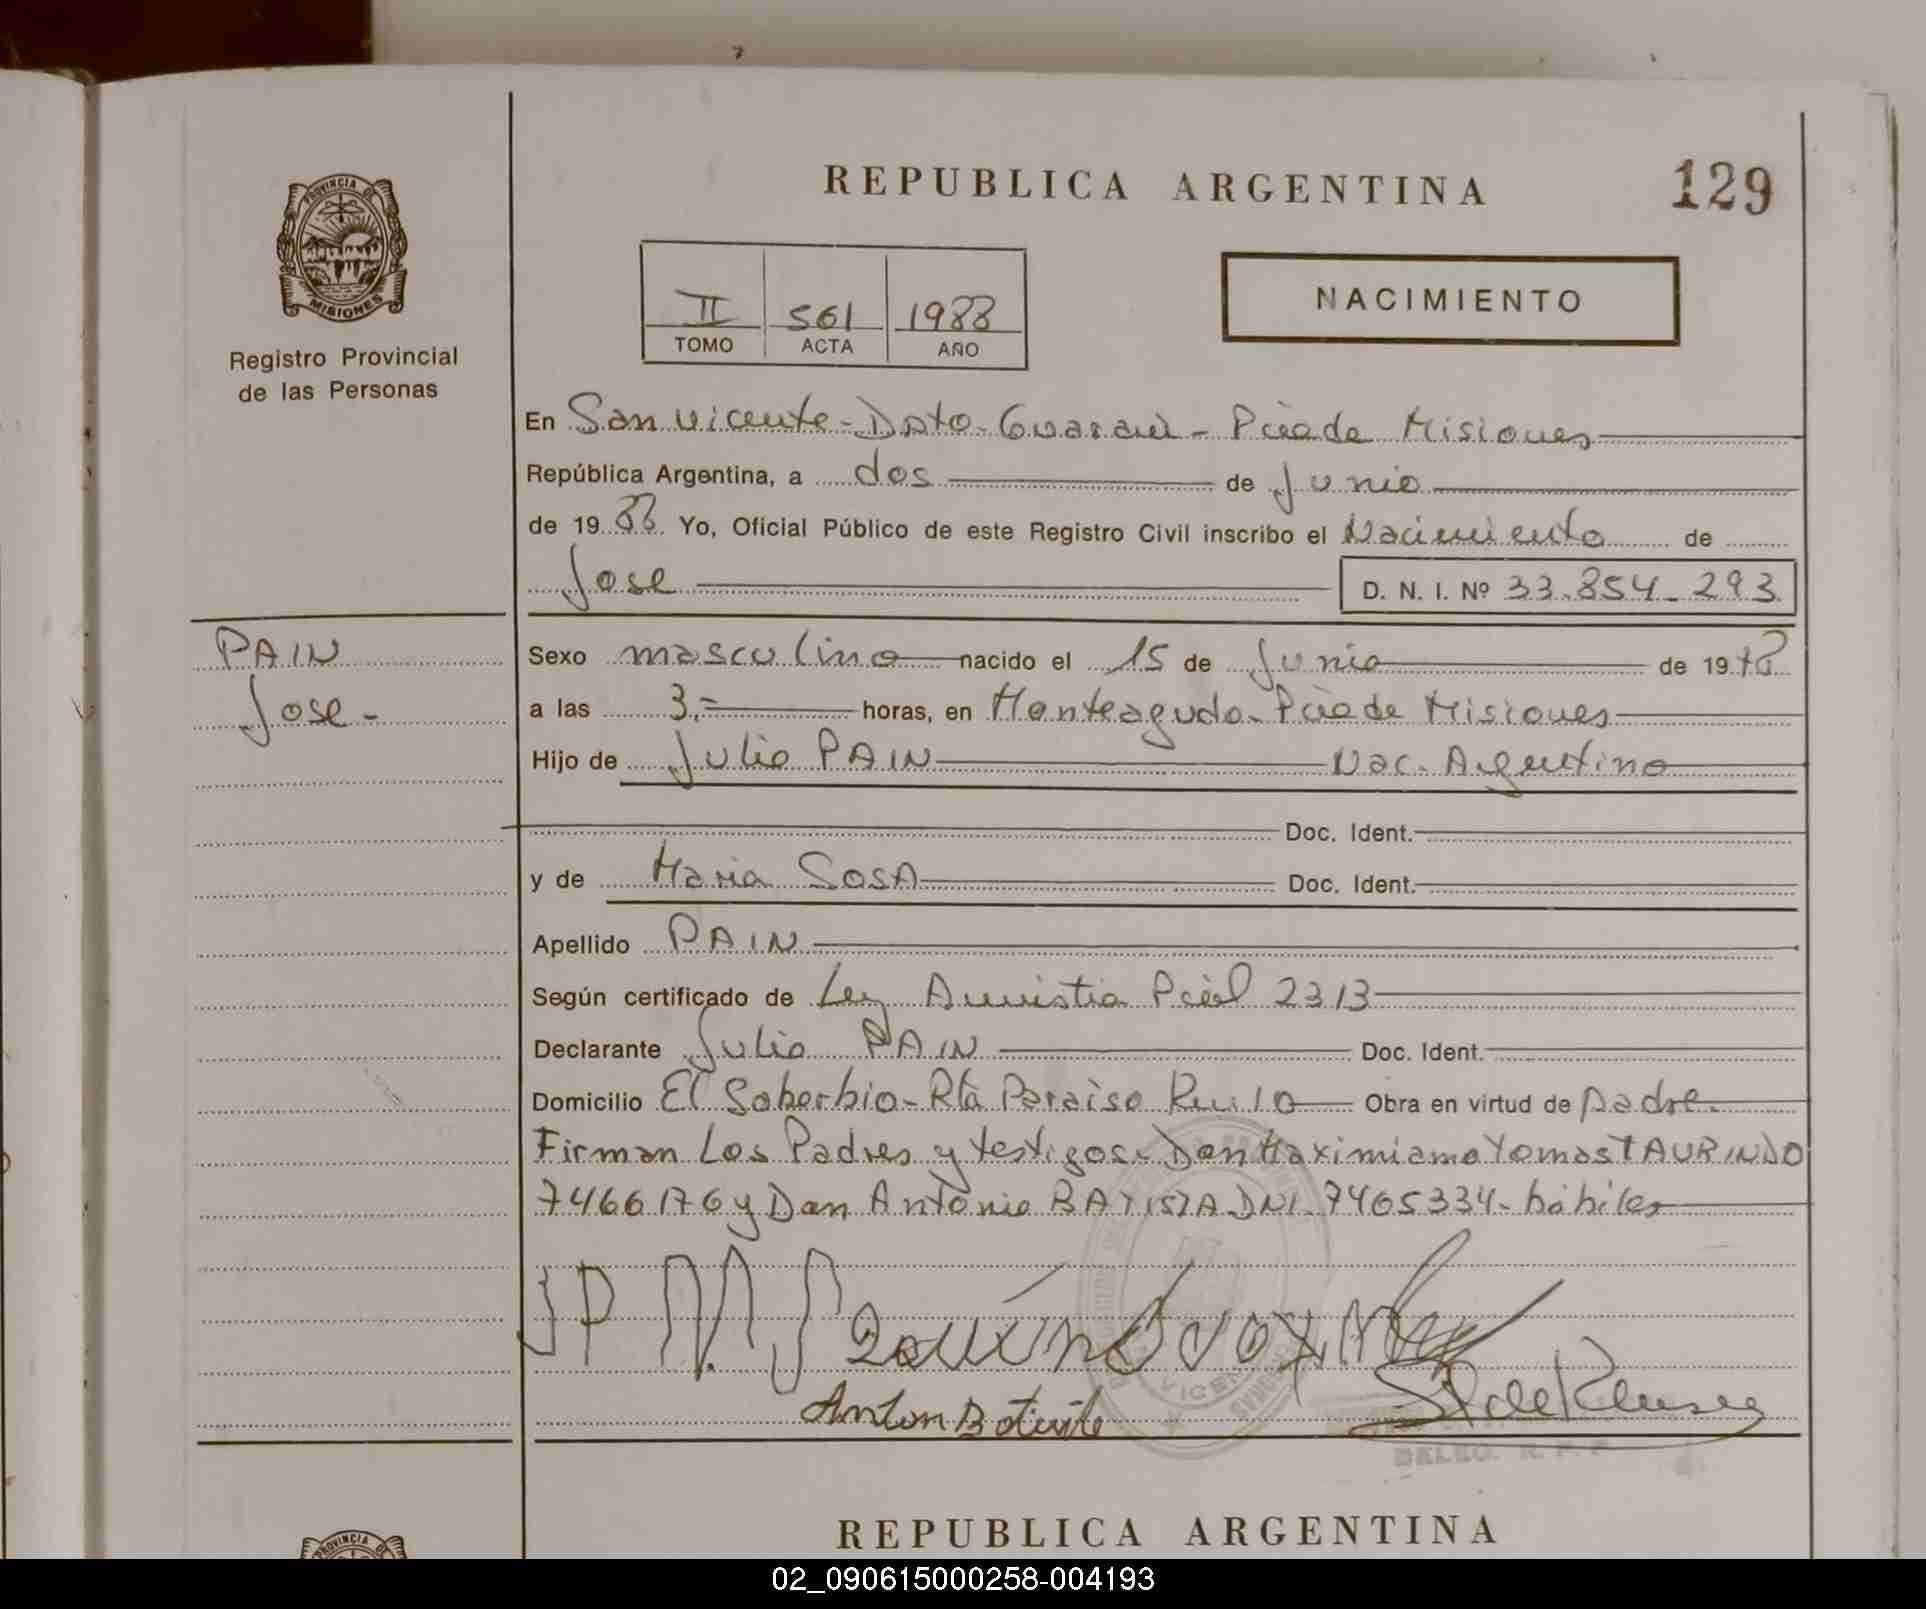 REPUBLICA ARGENTINA
129
PROVINCIA DE
MISIONES
Registro Provincial
de las Personas
II 561 1988
TOMO ACTA AÑO
NACIMIENTO
En San Vicente - Dpto - Guaraní - Pcia de Misiones
República Argentina, a dos de Junio
de 1988 Yo, Oficial Público de este Registro Civil inscribo el Nacimiento de
Jose D. N. I. Nº 33.854.293
PAIN
Jose -
Sexo masculino nacido el 15 de Junio de 19
a las 3,= horas, en Monteagudo - Pcia de Misiones
Hijo de Julio PAIN Nac. Argentino
Doc. Ident.
y de Maria SOSA Doc. Ident.
Apellido PAIN
Según certificado de Ley Amnistia Pcial 2313
Declarante Julio PAIN Doc. Ident.
Domicilio El Soberbio - Rta Paraiso Km 10 Obra en virtud de padre.
Firman Los Padres y testigos. Don Maximiano Tomas TAURINDO
7466176 y Don Antonio BATISTA DNI. 7465334 - hábiles
JP M S
DELEG. R. P. P.
REPUBLICA ARGENTINA
PROVINCIA DE
02_090615000258-004193